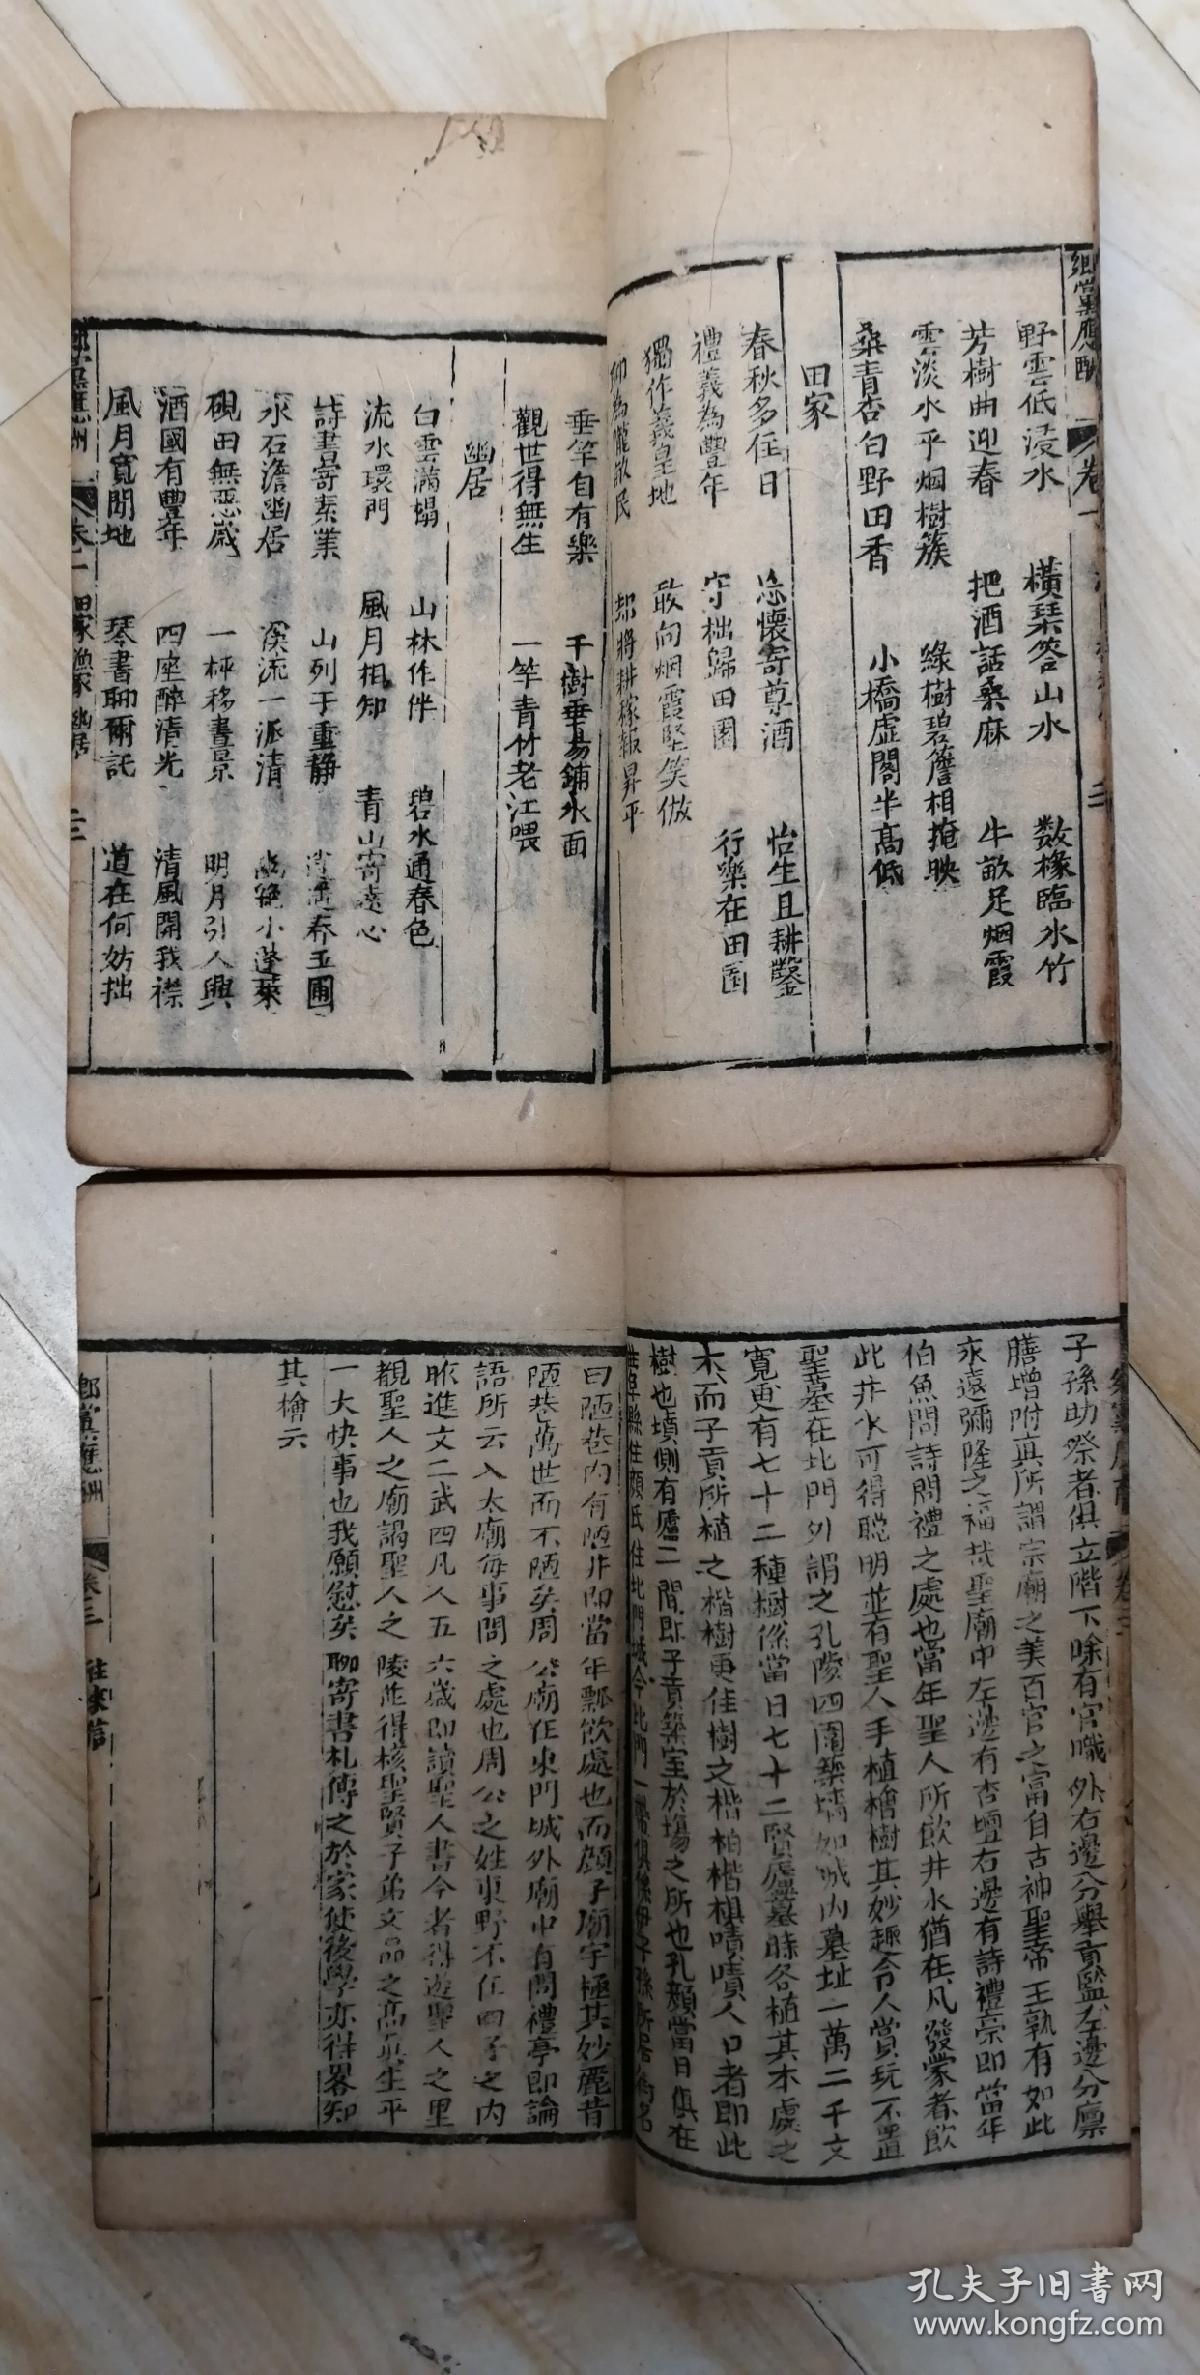 鄉黨應酬
卷一
野雲低浸水 橫琴答山水 数椽臨水竹
芳樹曲迎春 把酒話桑麻 牛畝足烟霞
雲淡水平烟樹簇 綠樹碧簷相掩映
桑青杏白野田香 小橋虛閣半高低
田家
春秋多佳日 忘懷寄尊酒 怡生且耕鑿
禮義為豐年 守拙歸田園 行樂在田園
獨作羲皇地 敢向烟霞堅笑傲
却將耕稼報昇平
垂竿自有樂 千樹垂楊鋪水面
觀世得無生 一竿青竹老江隈
幽居
白雲滿塌 山林作伴 碧水通春色
流水環門 風月相知 青山寄遠心
詩書寄素業 山列千重静
水石澹幽居 溪流一派清 小蓬萊
硯田無惡歲 一枰移晝景 明月引人興
酒國有豐年 四座醉清光 清風開我襟
風月寬閒地 琴書聊爾託 道在何妨拙
卷一 田家 漁家 幽居
子孫助祭者俱立階下除有官職外右邊分舉貢監左邊分廪
膳增附真所謂宗廟之美百官之富自古神聖帝王孰有如此
永遠彌隆之福哉聖廟中左邊有杏壇右邊有詩禮宗即當年
伯魚問詩問禮之處也當年聖人所飲井水猶在凡發蒙者飲
此井水可得聪明並有聖人手植檜樹其妙趣令人賞玩不置
聖墓在北門外謂之孔陵四圍築墻如城内墓址一萬二千文
寬更有七十二種樹係當日七十二賢廬墓時各植其本處之
木而子貢所植之楷樹更佳樹之楷柏楷棋嘖嘖人口者即此
樹也墳側有廬二間即子貢築室於塲之所也孔顏當日俱在
曲阜縣住顏氏住北門城今北門一帶俱係
曰陋巷内有陋井即當年瓢飲處也而顏子廟宇極其妙麗昔
陋巷萬世而不陋矣周公廟在東門城外廟中有問禮亭即論
語所云入太廟每事問之處也周公之姓東野不在四子之内
昨進文二武四凡人五六歲即讀聖人書今者得遊聖人之里
觀聖人之廟謁聖人之陵並得核聖賢子弟文品之高真生平
一大快事也我願慰矣聊寄書札傳之於家使後學亦得畧知
其檜示
卷三
孔夫子旧书网
www.kongfz.com